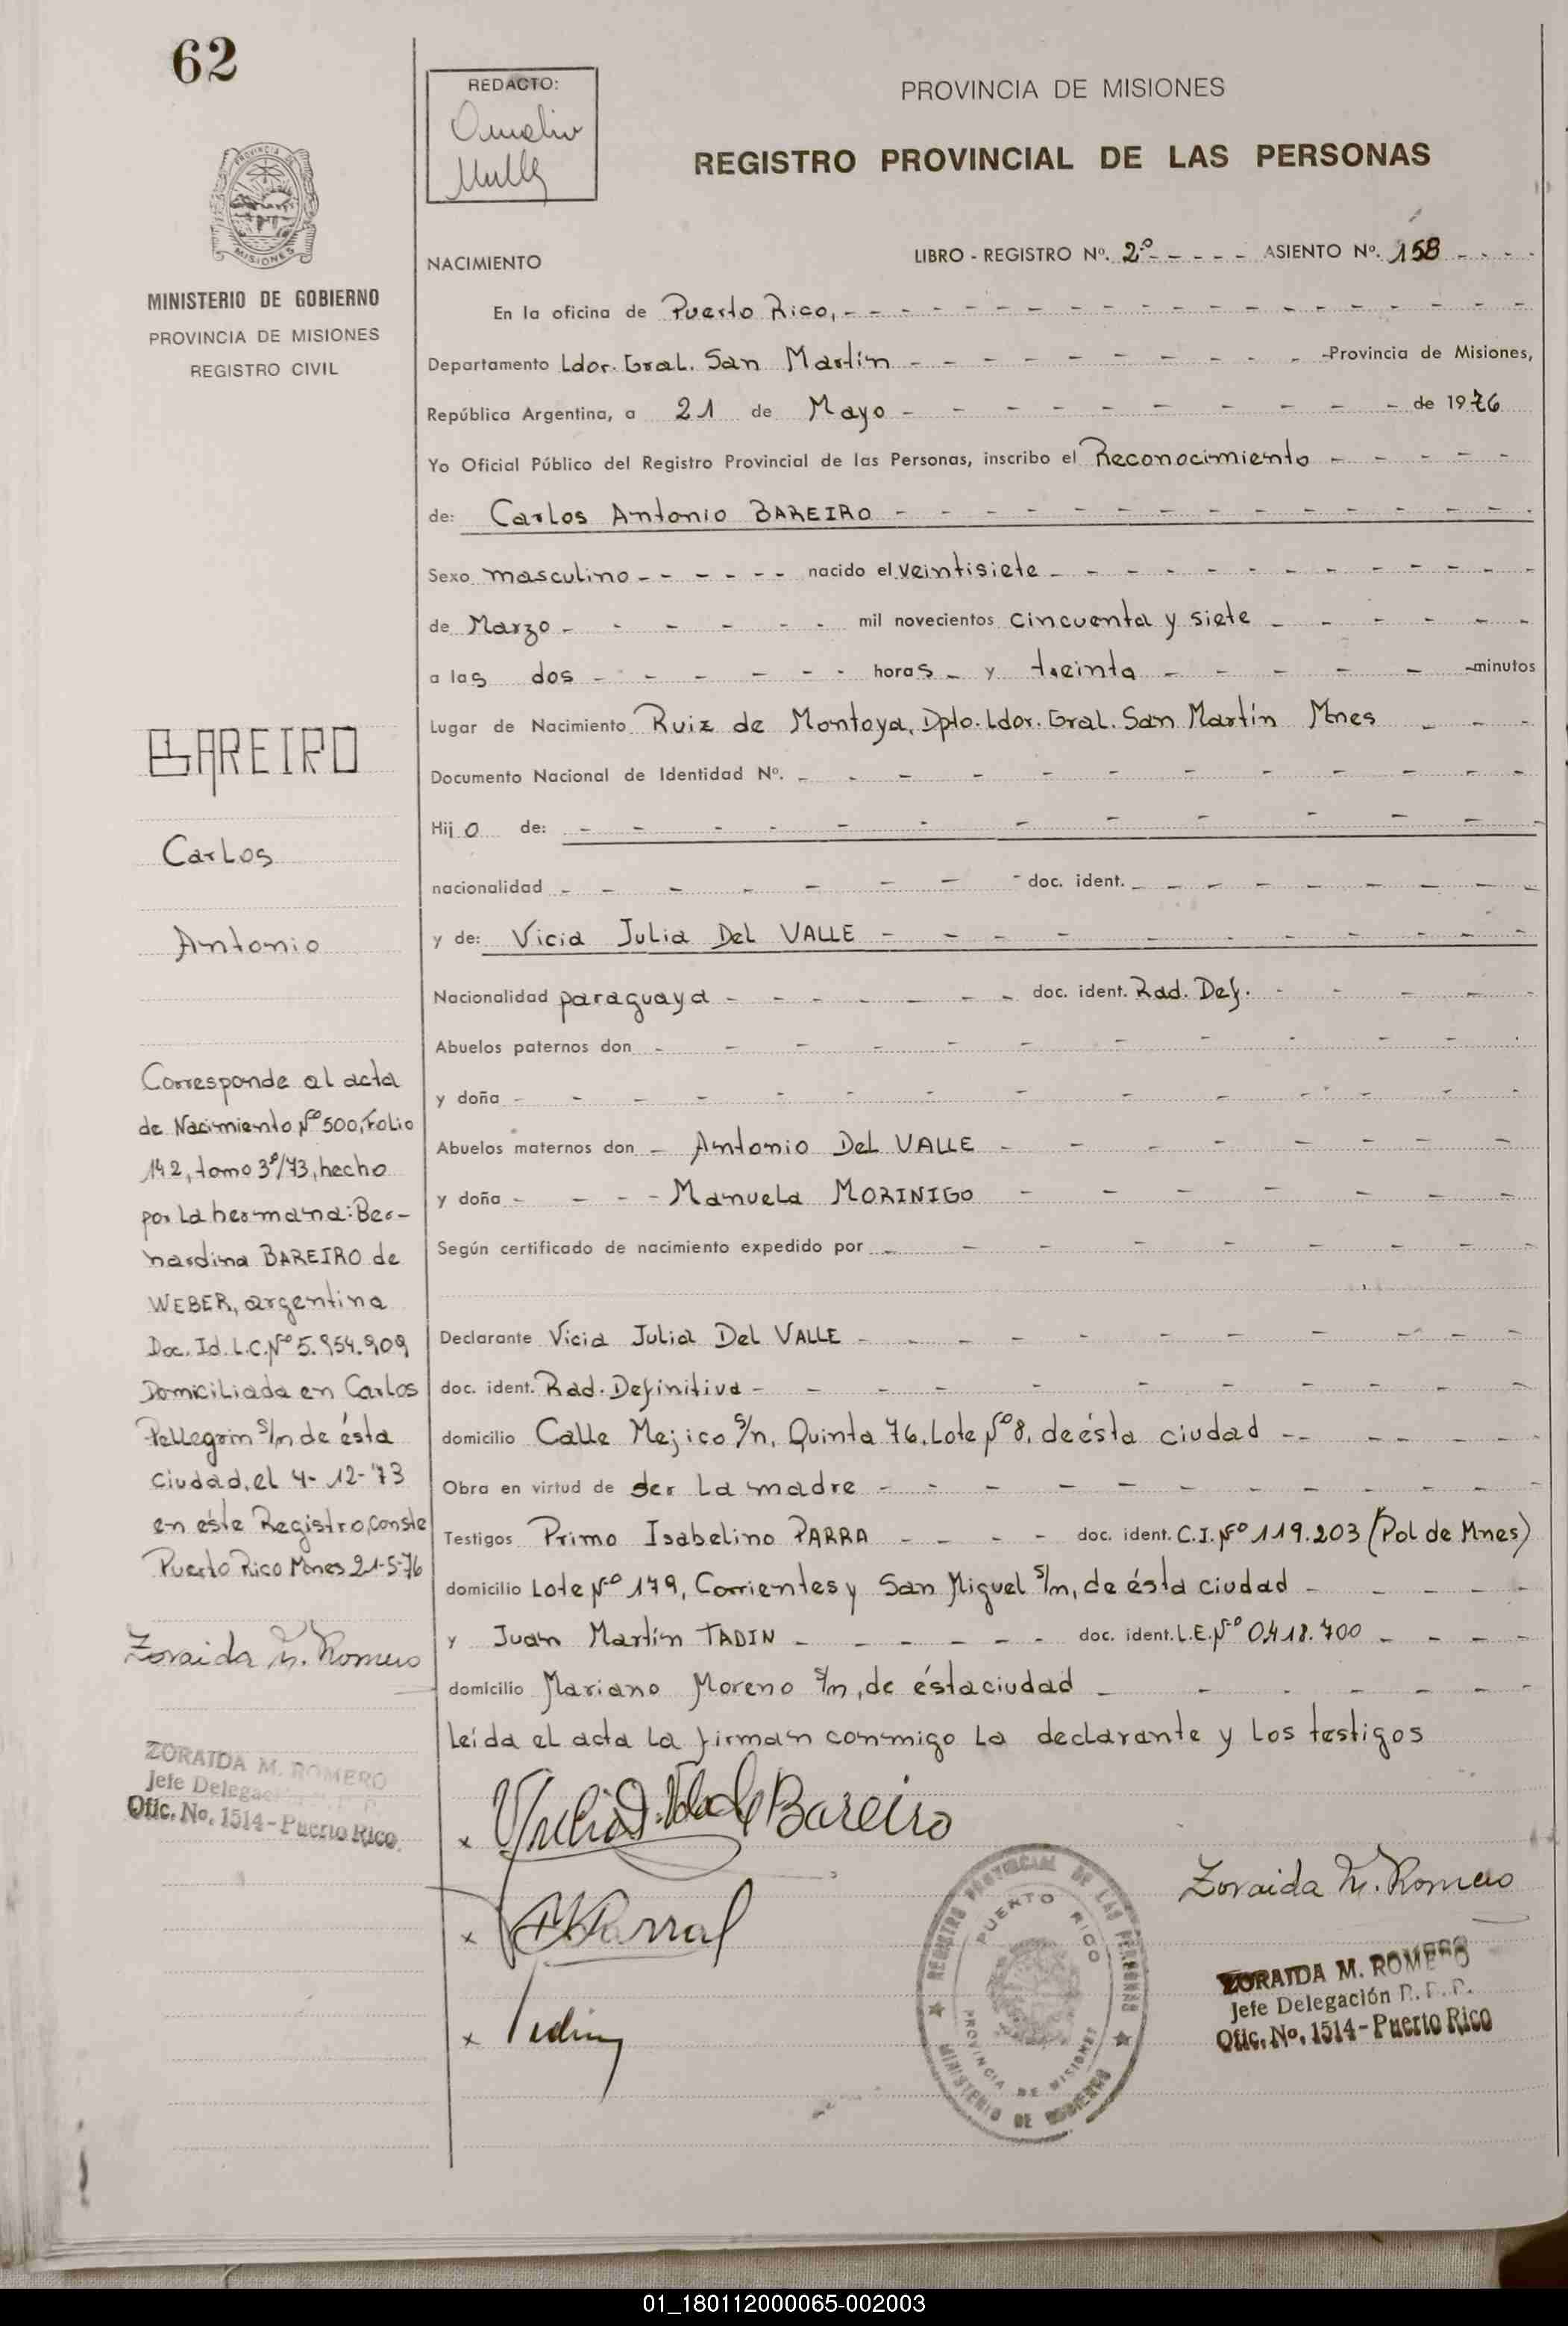 62
REDACTO:
PROVINCIA DE MISIONES
REGISTRO PROVINCIAL DE LAS PERSONAS
PROVINCIA DE
MISIONES
MINISTERIO DE GOBIERNO
PROVINCIA DE MISIONES
REGISTRO CIVIL
NACIMIENTO
LIBRO - REGISTRO Nº. 2º - - - - - ASIENTO Nº. 158 - - - -
En la oficina de Puerto Rico, - - -
Departamento Ldor. Gral. San Martín - - - Provincia de Misiones,
República Argentina, a 21 de Mayo - - - de 1976
Yo Oficial Público del Registro Provincial de las Personas, inscribo el Reconocimiento - - -
de: Carlos Antonio BAREIRO - - -
Sexo masculino - - - nacido el veintisiete - - -
de Marzo - - - mil novecientos cincuenta y siete - - -
a las dos - - - horas - y treinta - - - minutos
Lugar de Nacimiento Ruiz de Montoya, Dpto. Ldor. Gral. San Martín Mnes - - -
Documento Nacional de Identidad Nº. - - -
Hijo de: - - -
nacionalidad - - - doc. ident. - - -
y de: Vicia Julia Del VALLE - - -
Nacionalidad paraguaya - - - doc. ident. Rad. Def. - - -
Abuelos paternos don - - -
y doña - - -
Abuelos maternos don - Antonio Del VALLE - - -
y doña - - - - Manuela MORINIGO - - -
Según certificado de nacimiento expedido por - - -
Declarante Vicia Julia Del VALLE - - -
doc. ident. Rad. Definitiva - - -
domicilio Calle Mejico s/n, Quinta 76, Lote Nº 8, de ésta ciudad - - -
Obra en virtud de ser la madre - - -
Testigos Primo Isabelino PARRA - - - doc. ident. C.I. Nº 119.203 (Pol de Mnes)
domicilio Lote Nº 179, Corrientes y San Miguel s/n, de ésta ciudad - - -
y Juan Martín TADIN - - - doc. ident. L.E. Nº 0.418.700 - - -
domicilio Mariano Moreno s/n, de ésta ciudad - - -
leída el acta la firman conmigo la declarante y los testigos
BAREIRO
Carlos
Antonio
Corresponde al acta
de Nacimiento Nº 500, Folio
142, tomo 3º/73, hecho
por la hermana: Ber-
nardina BAREIRO de
WEBER, argentina
Doc. Id. L.C. Nº 5.954.909
Domiciliada en Carlos
Pellegrin s/n de ésta
ciudad, el 4-12-73
en este Registro, conste
Puerto Rico Mnes 21-5-76
Zoraida M. Romero
ZORAIDA M. ROMERO
Jefe Delegación R. P. P.
Ofic. No. 1514 - Puerto Rico
x Bareiro
x Parra
x Tadin
REGISTRO PROVINCIAL DE LAS PERSONAS
PUERTO RICO
PROVINCIA DE MISIONES
MINISTERIO DE GOBIERNO
Zoraida M. Romero
ZORAIDA M. ROMERO
Jefe Delegación R. P. P.
Ofic. No. 1514 - Puerto Rico
01_180112000065-002003